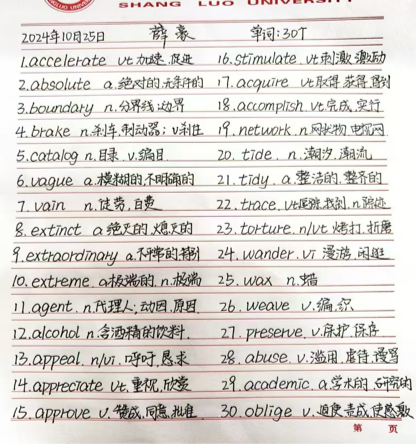 SHANG LUO UNIVERSITY
2024年10月25日 薛豪 单词:30个
1.accelerate vt.加速.促进 16.stimulate vt.刺激.激励
2.absolute a.绝对的.无条件的 17.acquire vt.取得.获得.得到
3.boundary n.分界线.边界 18.accomplish vt.完成.实行
4.brake n.刹车.制动器; v.刹住 19.network.n.网状物.电视网
5.catalog n.目录.v.编目 20.tide.n.潮汐.潮流
6.vague a.模糊的.不明确的 21.tidy.a.整洁的.整齐的
7.vain n.徒劳.自负 22.trace.vt.追踪.找到.n.踪迹
8.extinct a.绝灭的.熄灭的 23.torture.n/vt 烤打.折磨
9.extraordinary a.不平常的.特别 24.wander.vi 漫游.闲逛
10.extreme.a极端的.n.极端 25.wax n.蜡
11.agent.n.代理人;动因.原因 26.weave v.编.织
12.alcohol n.含酒精的饮料. 27.preserve.v.保护.保存
13.appeal.n/vi.呼吁.恳求 28.abuse.v.滥用.虐待.谩骂
14.appreciate vt.重视.欣赏 29.academic.a.学术的.研究的
15.approve v.赞成.同意.批准 30.oblige v.迫使.责成.使感激
第 页